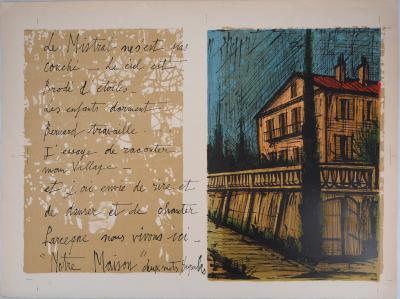 Le Mistral ne s'est pas
couché - Le ciel est
Brodé d'étoiles.
Les enfants dorment
Bernard travaille.
J'essaye de raconter
mon Village -
et j'ai envie de rire et
de danser et de chanter
parceque nous vivons ici -
"Notre Maison" deux mots